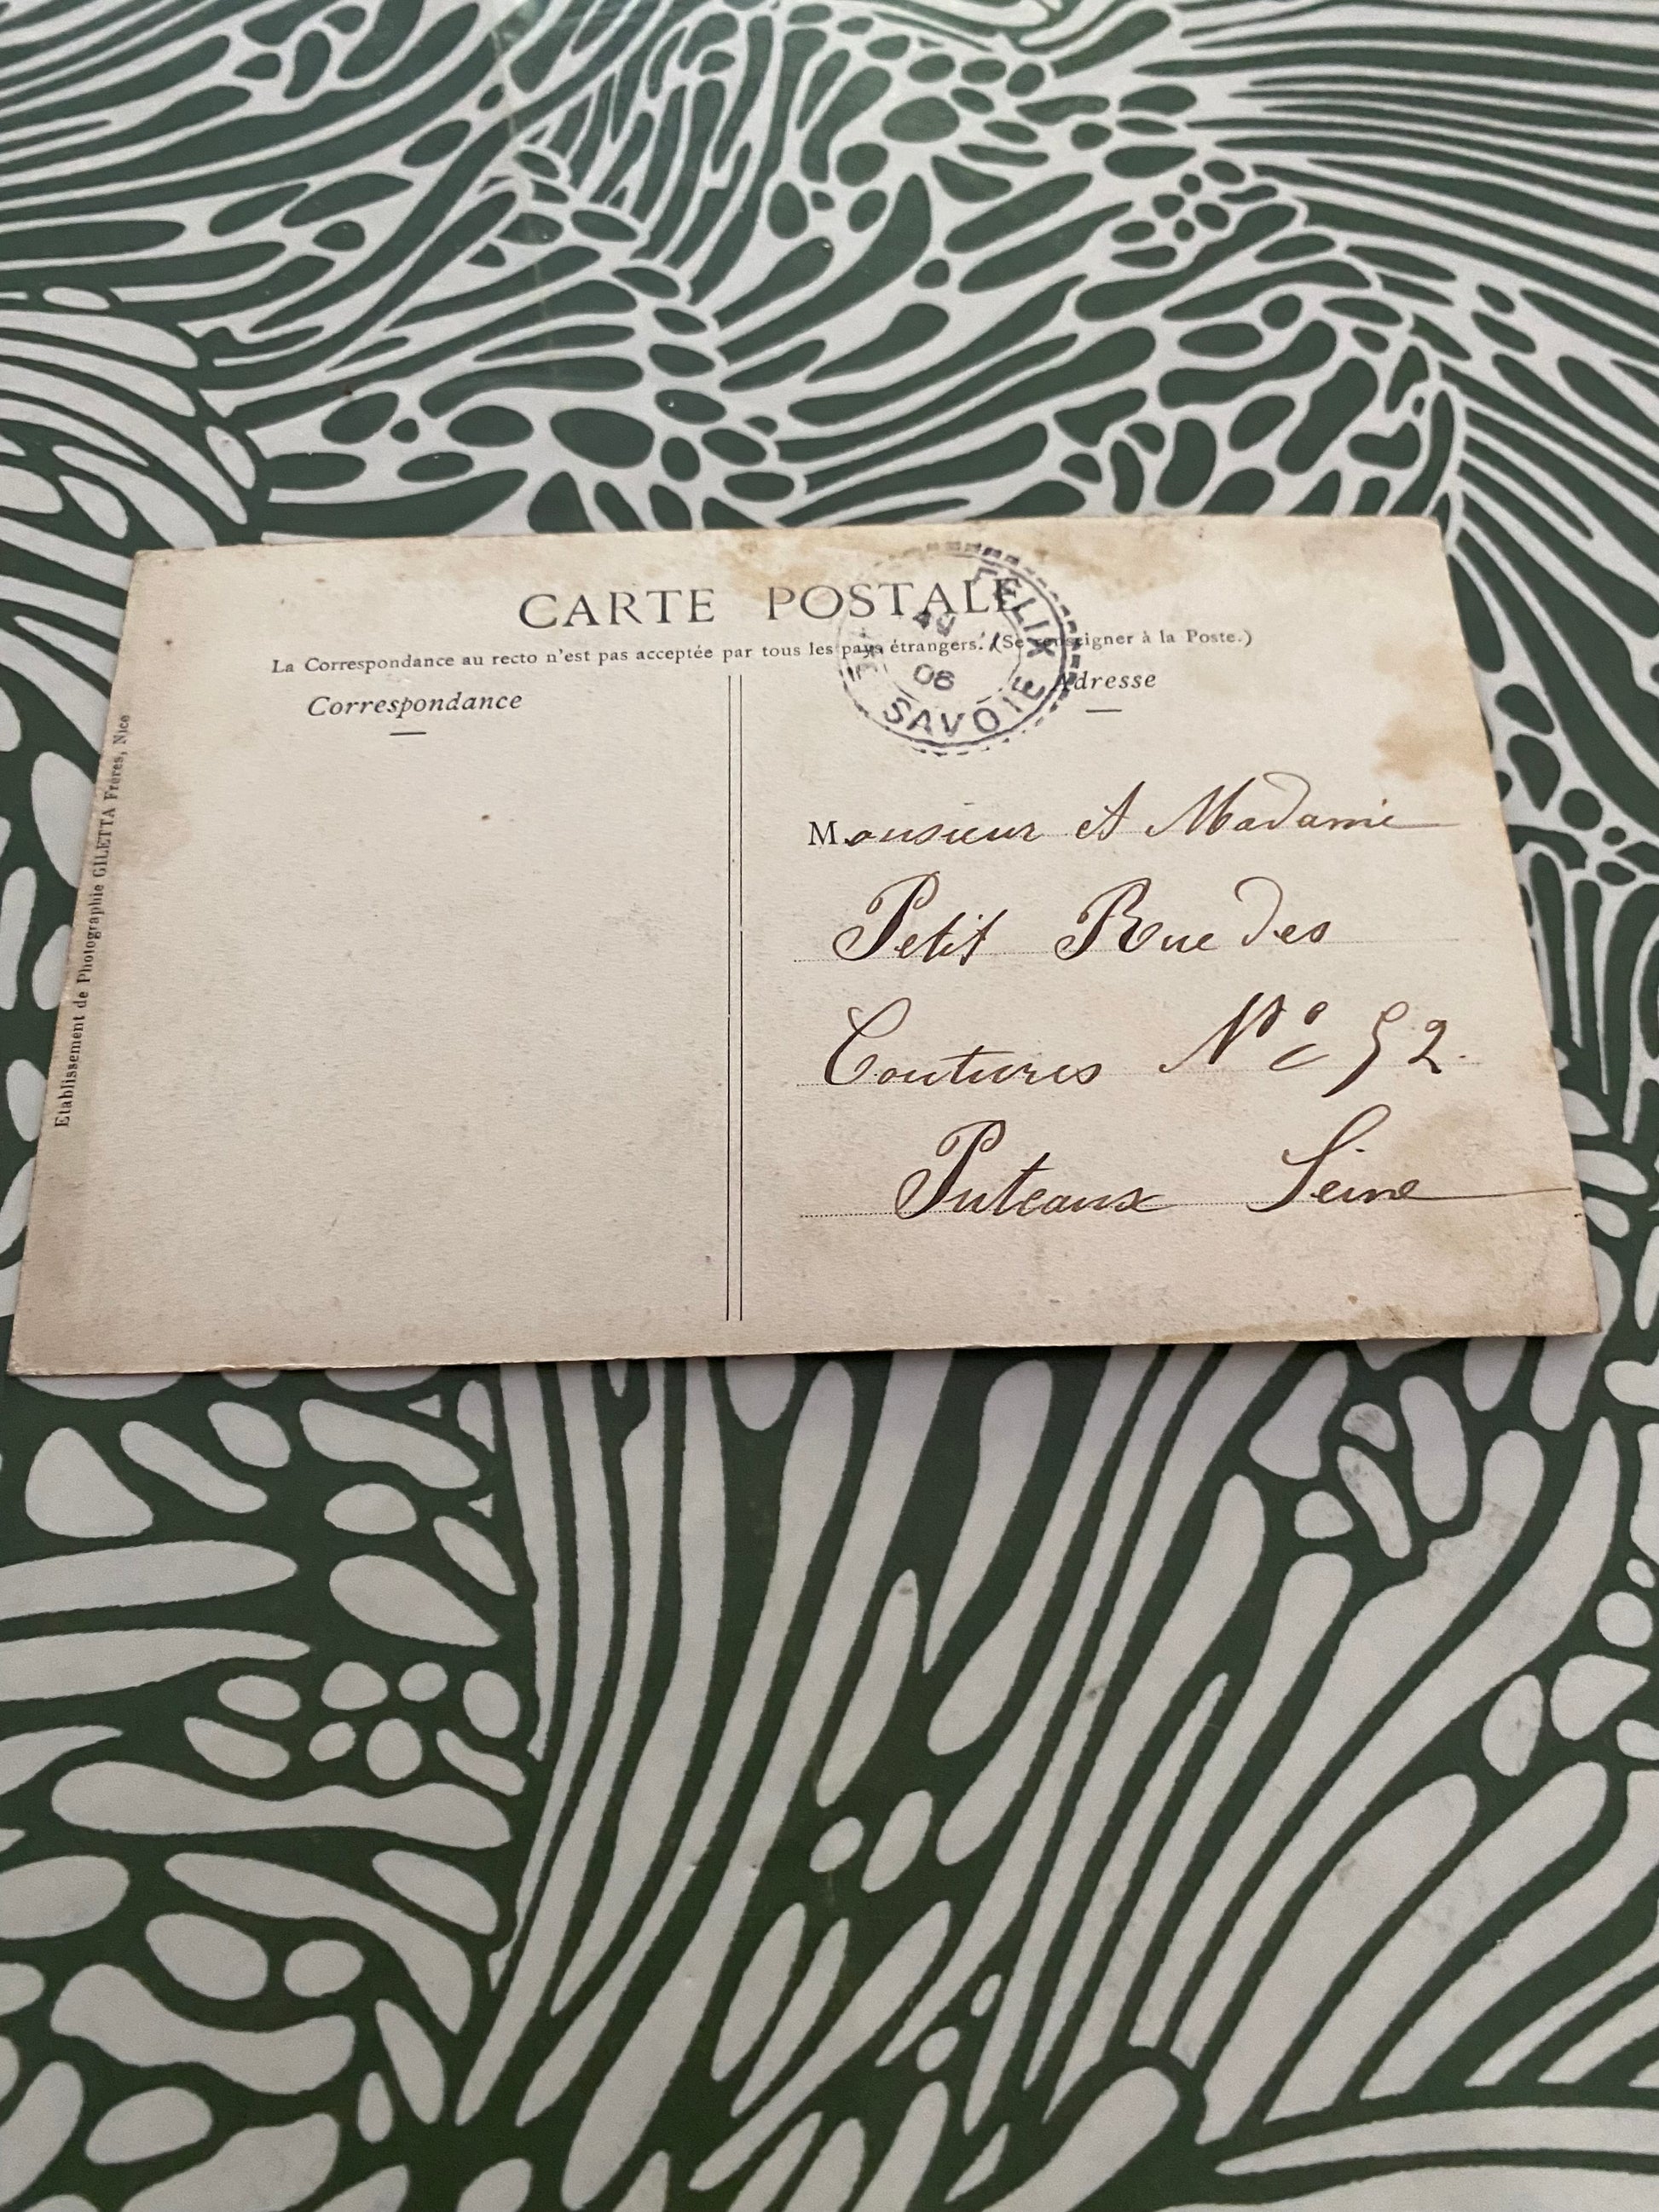 CARTE POSTALE
La Correspondance au recto n'est pas acceptée par tous les pays étrangers. (Se renseigner à la Poste.)
Correspondance
Adresse
FELIX
08
SAVOIE
Etablissement de Photographie GILETTA Frères, Nice
Monsieur et Madame
Petit Rue des
Coutures N° 52
Puteaux Seine